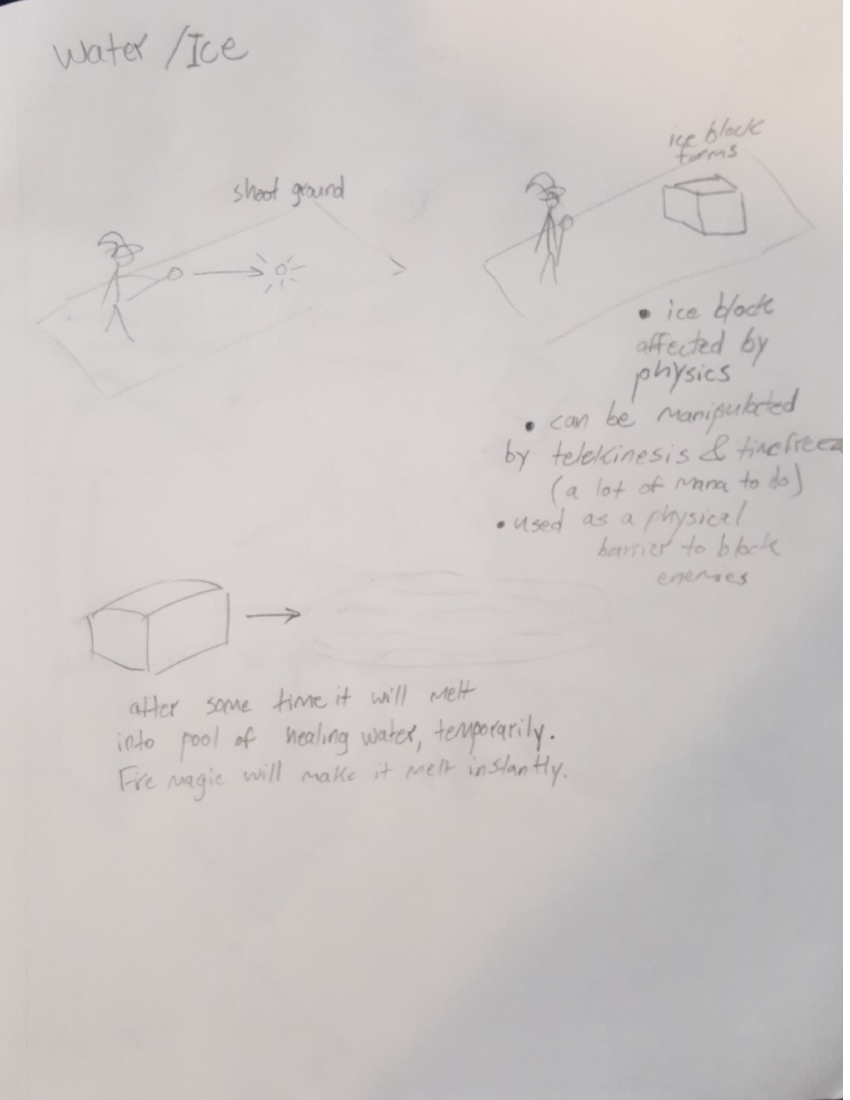 Water / Ice
shoot ground
ice block
forms
• ice block
affected by
physics
• can be manipulated
by telekinesis & timefreez
(a lot of mana to do)
• used as a physical
barrier to block
enemies
after some time it will melt
into pool of healing water, temporarily.
Fire magic will make it melt instantly.